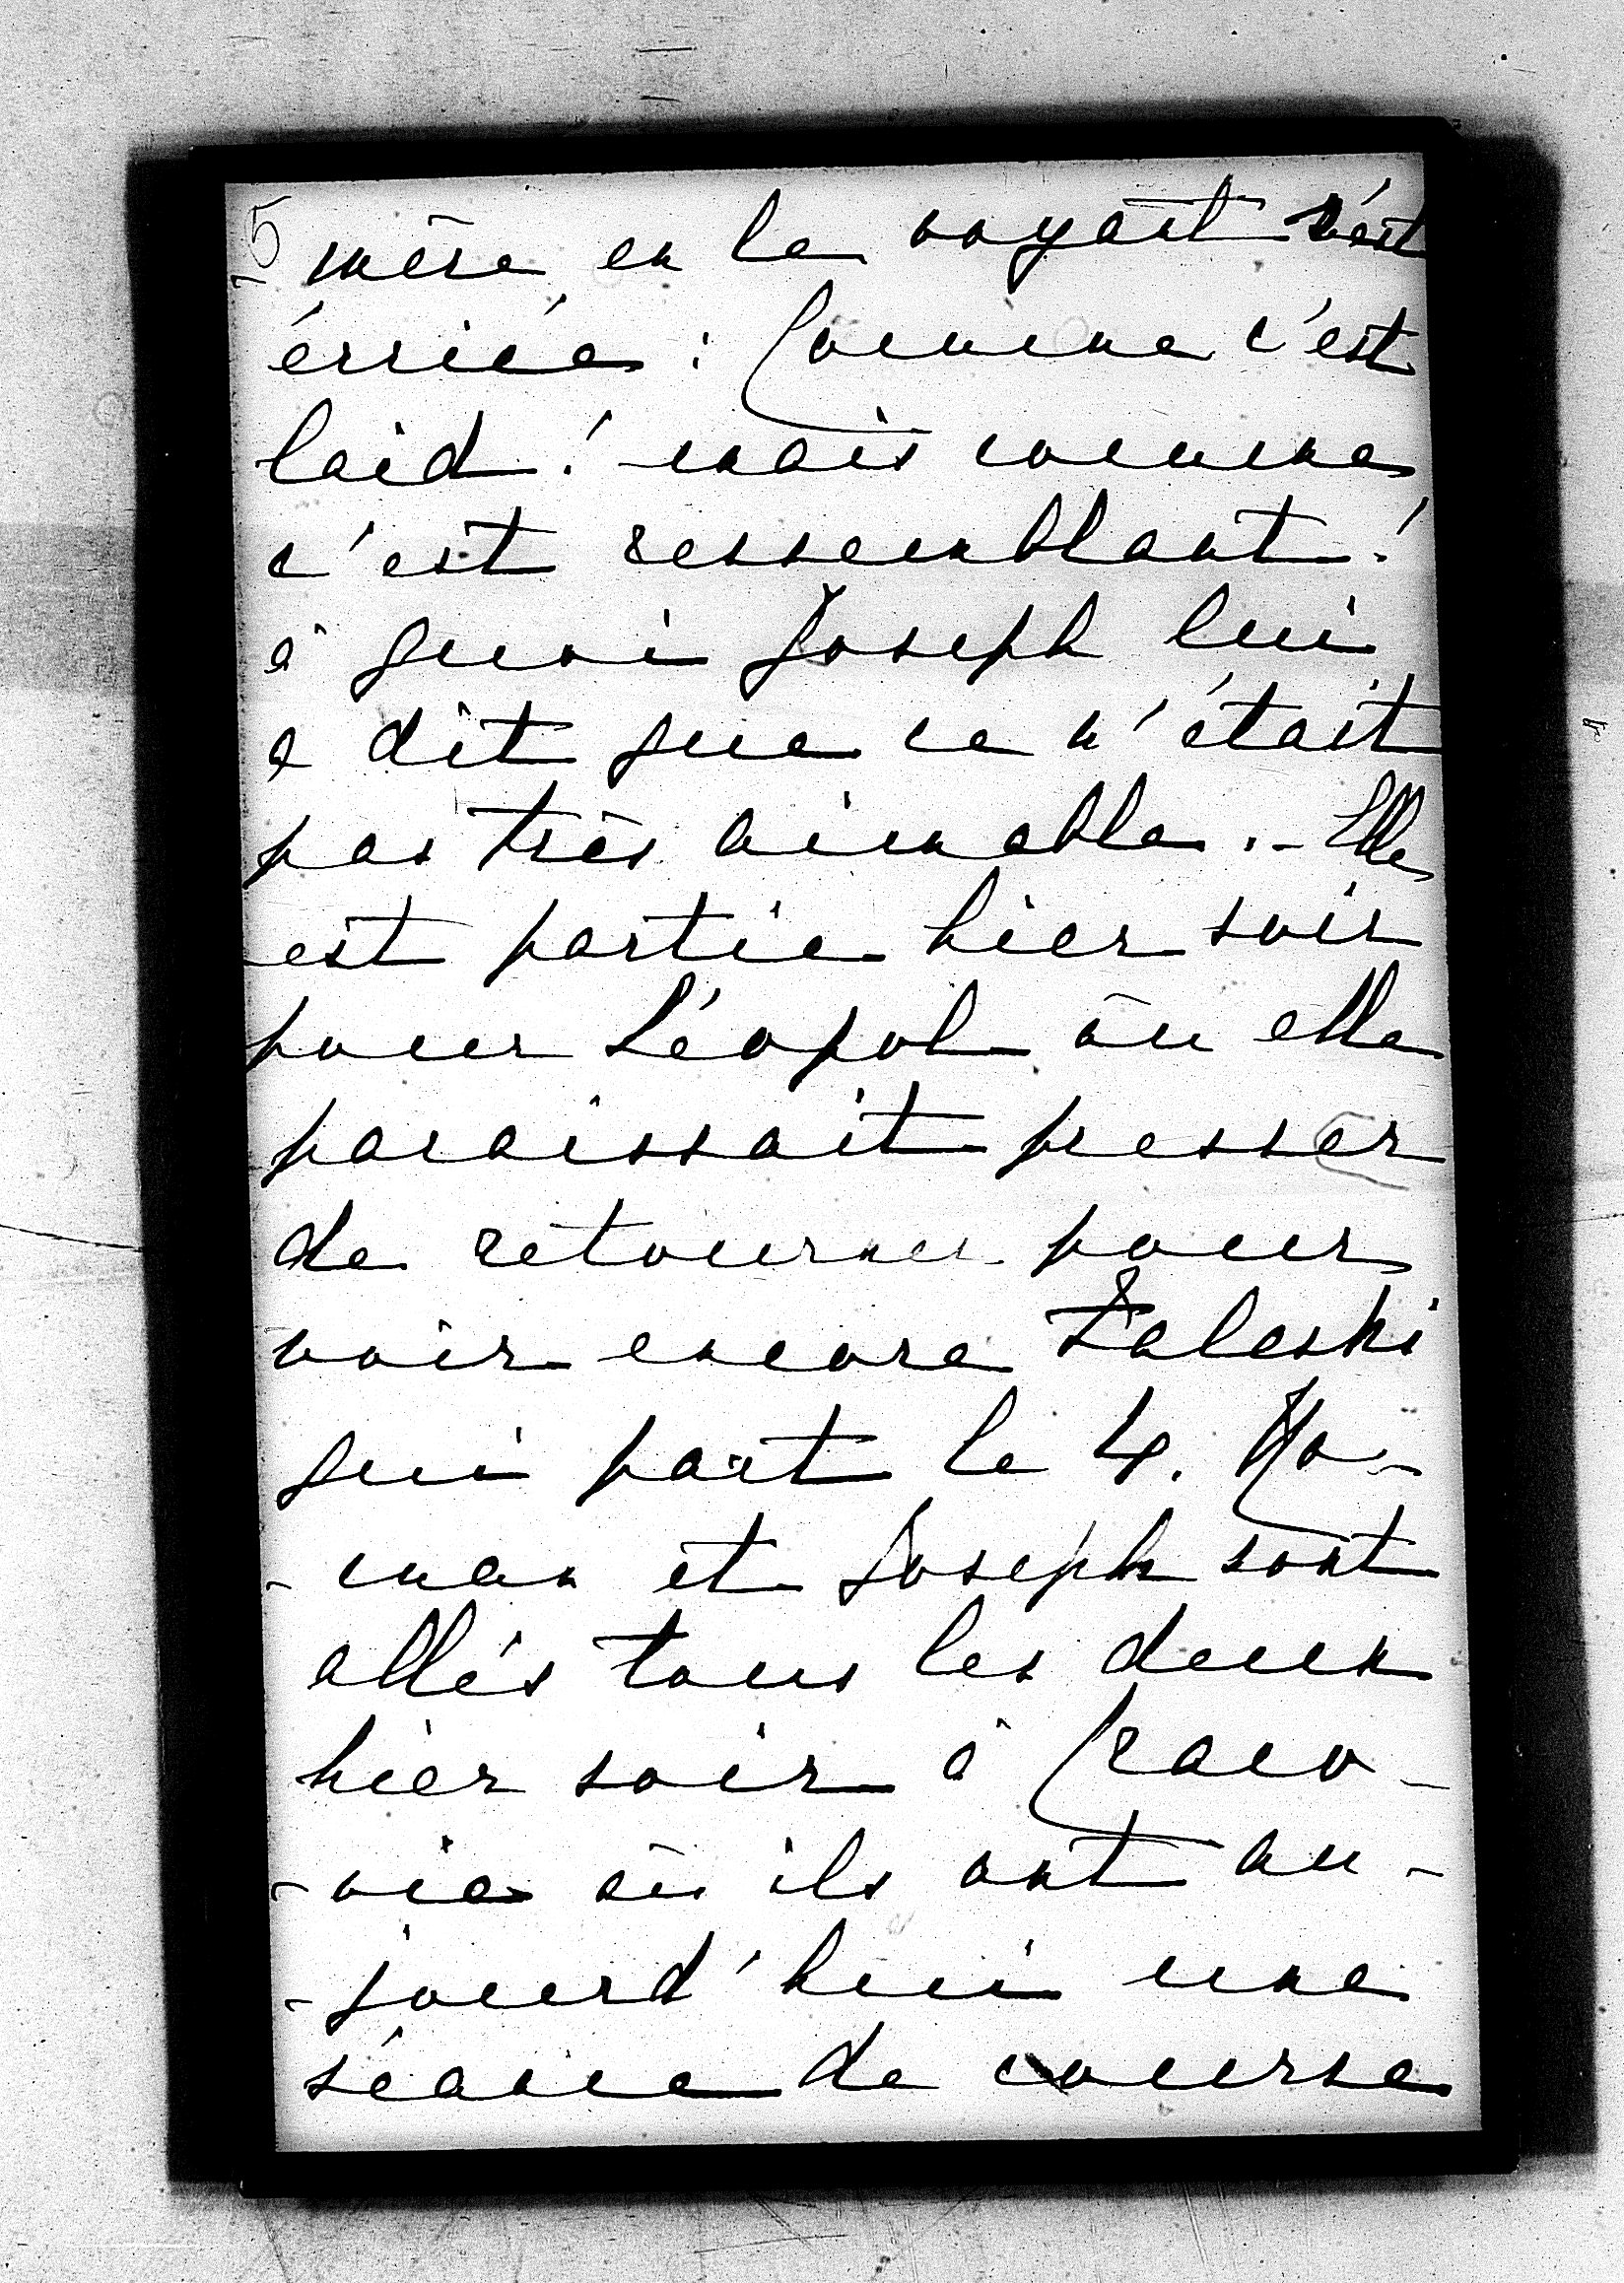 5
mère en le voyant s'est
écriée : Comme c'est
laid ! mais comme
c'est ressemblant !
à quoi Joseph lui
a dit que ce n'était
pas très aimable. - Elle
est partie hier soir
pour Léopol où elle
paraissait presser
de retourner pour
voir encore Zaleski
qui part le 4. Ro-
- man et Joseph sont
allés tous les deux
hier soir à Craco-
- vie où ils ont au-
- jourd'hui une
séance de course